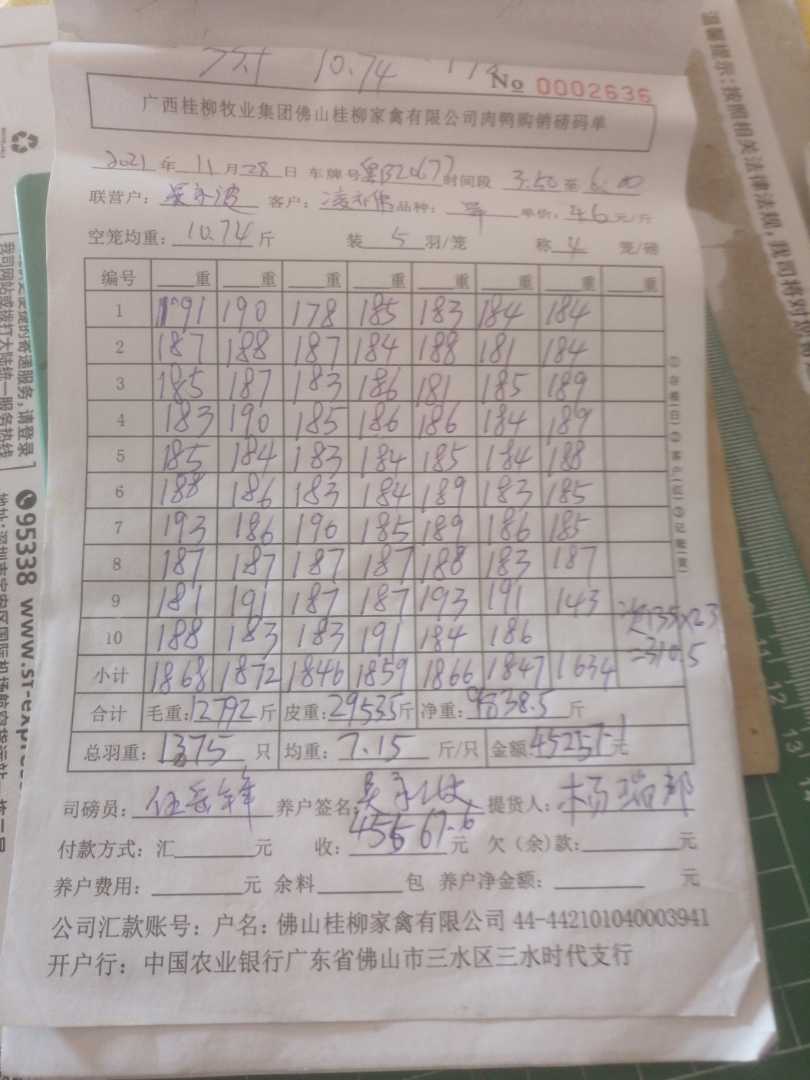 10.74
No 0002636
广西桂柳牧业集团佛山桂柳家禽有限公司肉鸭购销磅码单
2021年11月28日 车牌号 时间段 3.50至6:00
联营户: 客户: 品种: 单价: 4.6元/斤
空笼均重: 10.74斤 装5羽/笼 称4笼/磅
编号 重 重 重 重 重 重 重 重
1 191 190 178 185 183 184 184
2 187 188 187 184 188 181 184
3 185 187 183 186 181 185 189
4 183 190 185 186 186 184 189
5 185 184 183 184 185 184 188
6 188 186 183 184 189 183 185
7 193 186 190 185 189 186 185
8 187 187 187 187 188 183 187
9 181 191 187 187 193 191 143
10 188 183 183 191 184 186
=310.5
小计 1868 1872 1846 1859 1866 1847 1634
合计 毛重: 12792斤 皮重: 2953.5斤 净重: 9838.5斤
总羽重: 1375只 均重: 7.15斤/只 金额: 45257.1元
司磅员: 养户签名: 提货人: 杨瑞郎
付款方式: 汇 元 收: 45567.6元 欠(余)款: 元
养户费用: 元 余料 包 养户净金额: 元
公司汇款账号: 户名: 佛山桂柳家禽有限公司 44-442101040003941
开户行: 中国农业银行广东省佛山市三水区三水时代支行
①存根(白)②客户(红)③记账(黄)
温馨提示:按照相关法律法规,我司将对
服务,请登录
我司网站或拨打大陆统一服务热线
95338 www.sf-expres